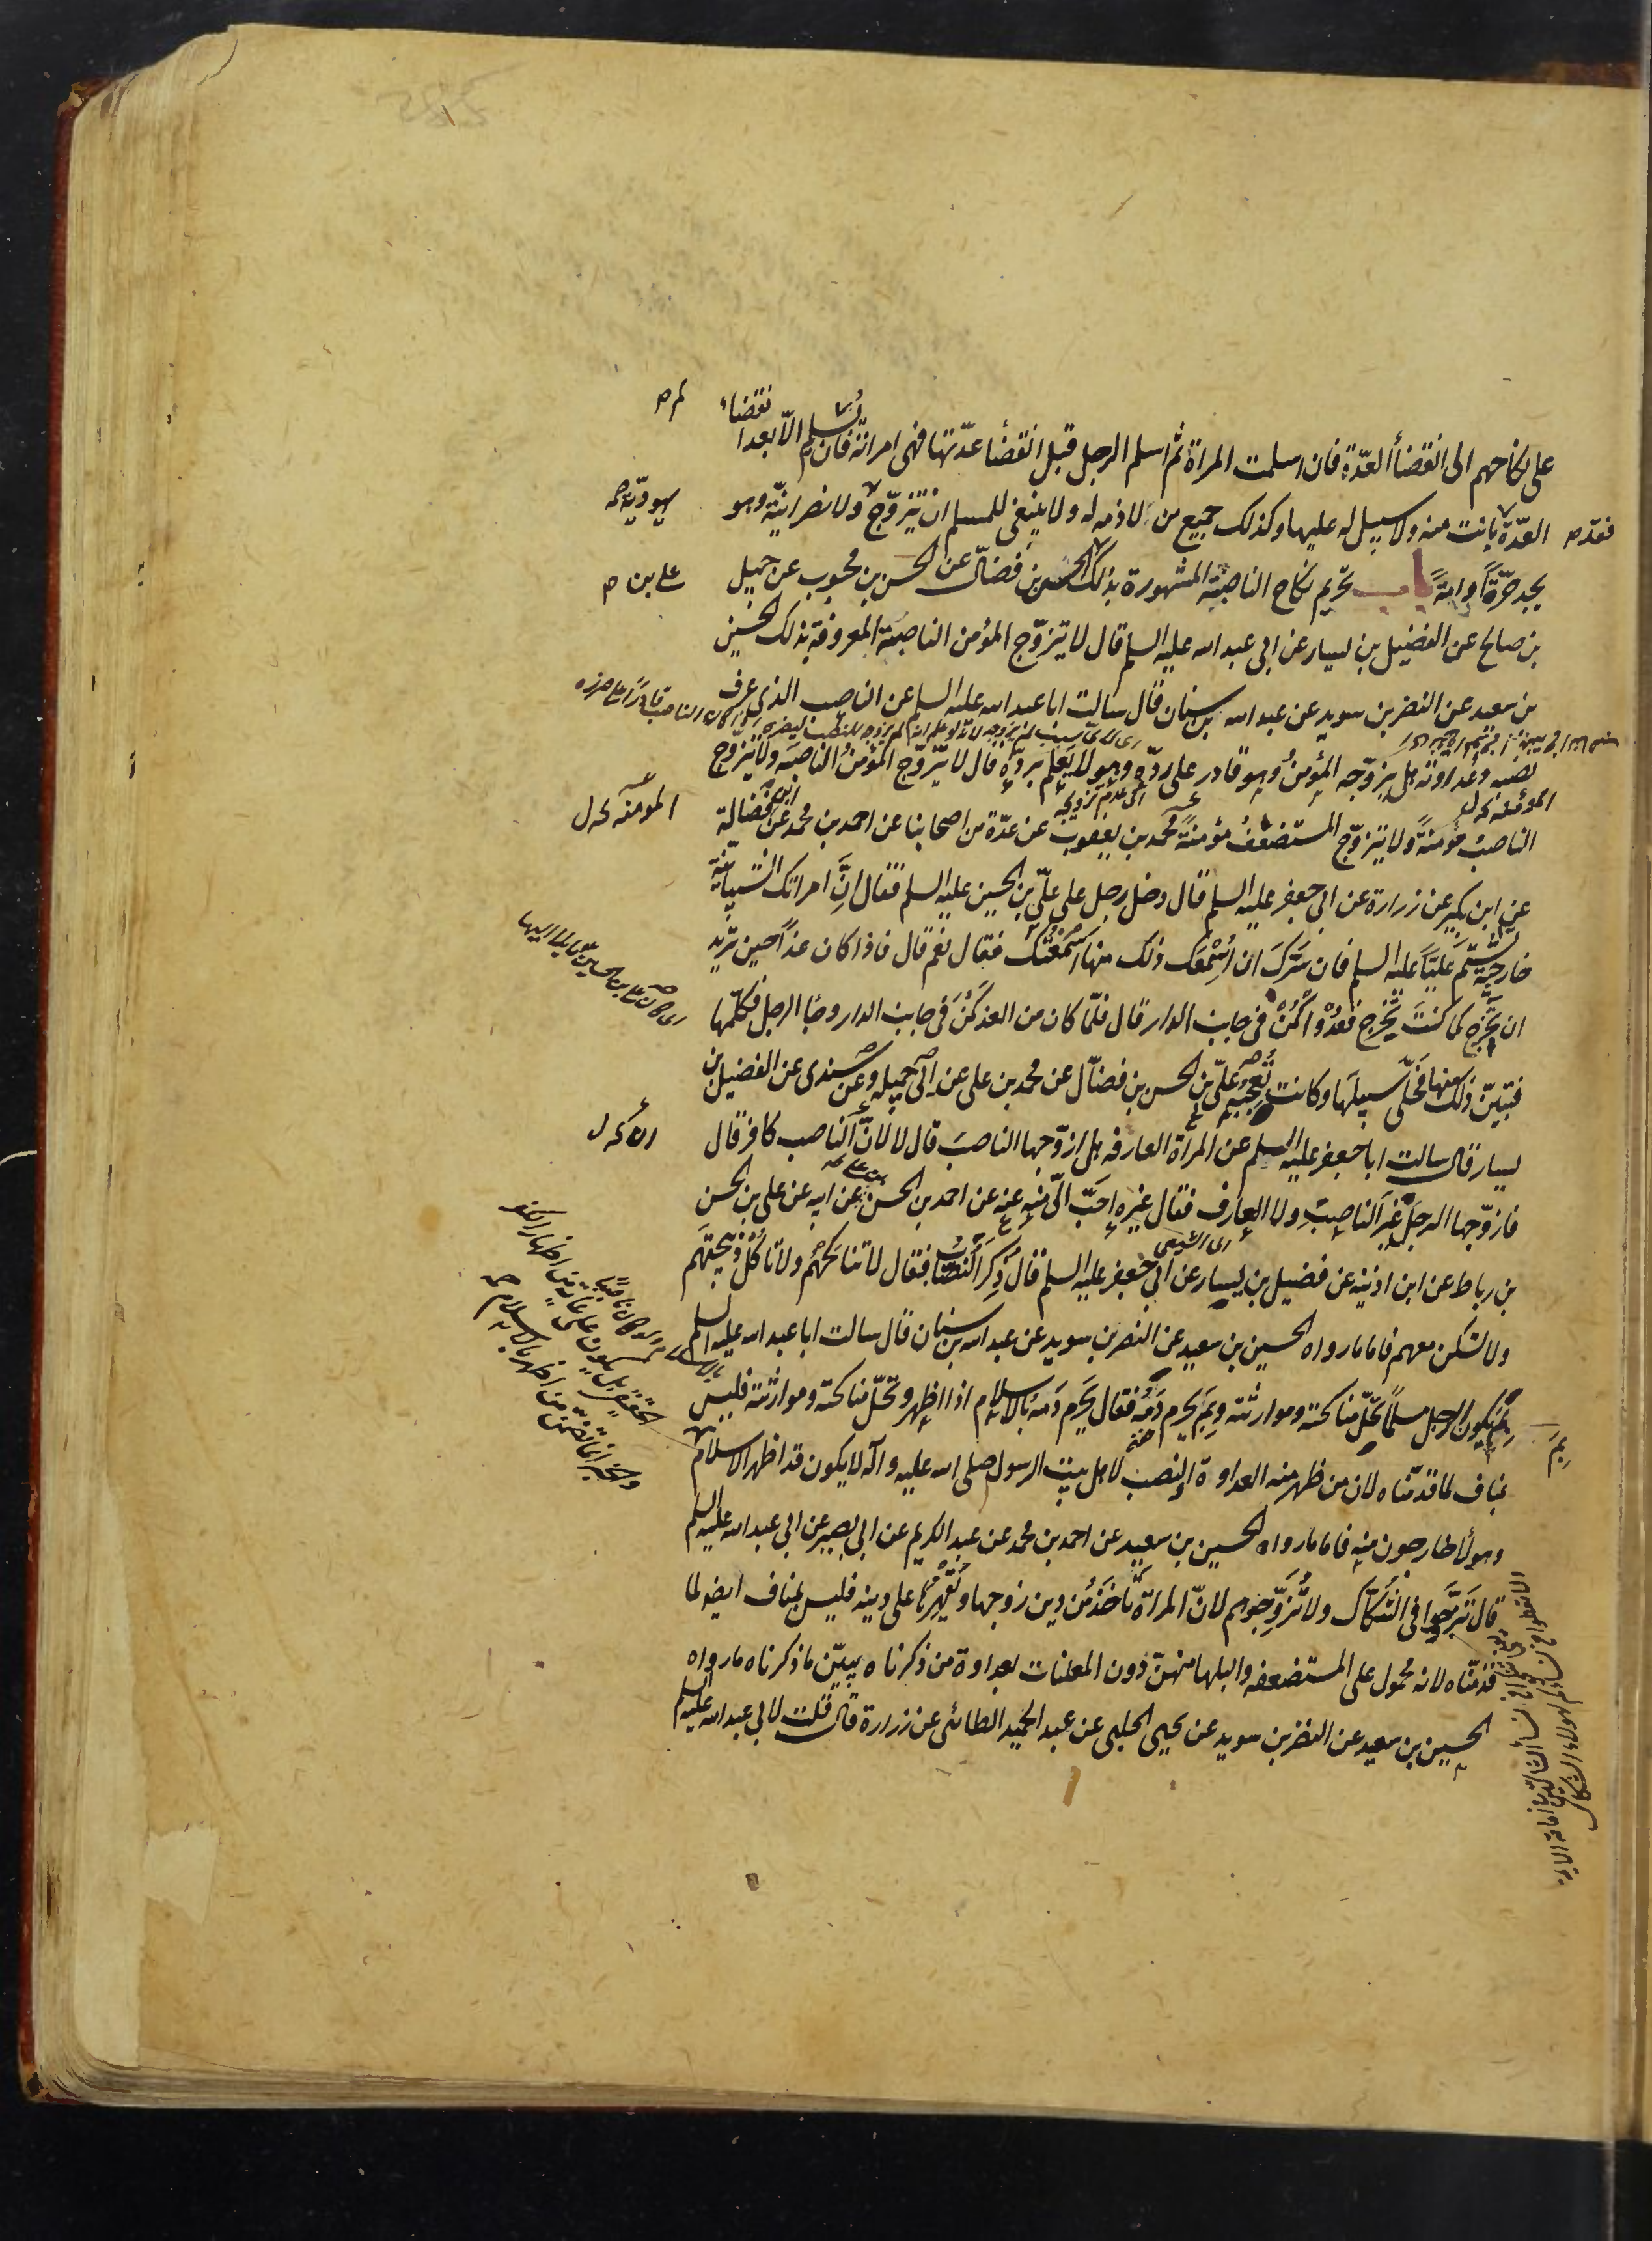 على نكاحهم الى انقضأ العدّة فان اسلمت المراة ثم اسلم الرجل قبل انقضأ عدّتها فهى امراته فان يُسلم الّا بعد انقضاء
لم ص
العدّة بانت منه ولا سبيل له عليها وكذلك جميع من لا ذمه له ولا ينبغى للمسلم ان يتزوّج ولا نصرانيّة وهو
فقد ص
يهوديّة صح
يجد حرّة او امة باب تحريم نكاح الناصبيّة المشهورة بذلك الحسن بن فضّال عن الحسن بن محبوب عن جميل
على بن ص
بن صالح عن الفضيل بن يسار عن ابى عبد الله عليه السلم قال لا يتزوّج المؤمن الناصبة المعروفة بذلك الحسين
بن سعيد عن النضر بن سويد عن عبد الله بن سنان قال سالت ابا عبد الله عليه السلم عن الناصب الذى عرف
نصبه وعداوته هل يزوّجه المؤمنُ وهو قادر على ردّه وهو لا يعلم بردّه قال لا يتزوّج المؤمنُ الناصبَه ولا يتزوّج
الناصبُ مؤمنةً ولا يتزوّج المستضعفُ مؤمنةً محمد بن يعقوب عن عدّة من اصحابنا عن احمد بن محمد عن ابن فضال
المومنه كه ل
عن ابن بكير عن زرارة عن ابى جعفر عليه السلم قال دخل رجل على علىّ بن الحسين عليه السلم فقال انَّ امراتك الشيبانيّة
خارجيّة تشتم عليّا عليه السلم فان سرّك ان اُسْمِعَك ذلك منها اسمعتُك فقال نعم قال فاذا كان غدا حين تريد
ان تخرج كما كنتَ تخرج فعُدْ واكْمُن فى جانب الدار قال فلمّا كان من الغد كمن فى جانب الدار وجأ الرجل فكلّمها
فتبيّن ذلك منها فخلّى سبيلَها وكانت تُعجبه علىّ بن الحسن بن فضّال عن محمد بن على عن ابى جميله وعن سندى عن الفضيل بن
يسار قال سالت ابا جعفر عليه السلم عن المراة العارفه هل ازوّجها الناصبَ قال لا لانّ الناصب كافر قال
فازوّجها الرجلَ غيرَ الناصبِ ولا العارف فقال غيره احَبّ الىّ منه عنه عن احمد بن الحسن عن ابيه عن على بن الحسن
بن رباط عن ابن اذينه عن فضيل بن يسار عن ابى جعفر عليه السلم قال ذُكِرَ النصّاب فقال لا تناكحْهُم ولا تاكُلْ ذبيحتَهم
ولا تسكن معهم فاما ما رواه الحسين بن سعيد عن النضر بن سويد عن عبد الله بن سنان قال سالت ابا عبد الله عليه السلم
بِمَ يكون الرجل مسلمًا تحلّ مناكحته وموارثته وبِمَ يحرم دَمُه فقال يحرم دَمه بالاسلام اذا اظهر وتحلّ مناكحته وموارثته فليس
بِمَ
بمناف لما قدمناه لان من ظهر منه العداوة والنصب لاهل بيت الرسول صلى الله عليه واله لا يكون قد اظهر الاسلام
وهولأ خارجون منه فاما ما رواه الحسين بن سعيد عن احمد بن محمد عن عبد الكريم عن ابى بصير عن ابى عبد الله عليه السلم
قال تَزَوّجوا فى الشُكّاك ولا تُزَوِّجوهم لانّ المراة تأخذُ من دين زوجها ويقهرها على دينه فليس بمناف ايضا لما
قدمناه لانه محمول على المستضعفه والبلها منهنّ دون المعلنات بعداوة من ذكرناه يبيّن ما ذكرناه ما رواه
الحسين بن سعيد عن النضر بن سويد عن يحيى الحلبى عن عبد الحميد الطائى عن زرارة قال قلت لابى عبد الله عليه السلم